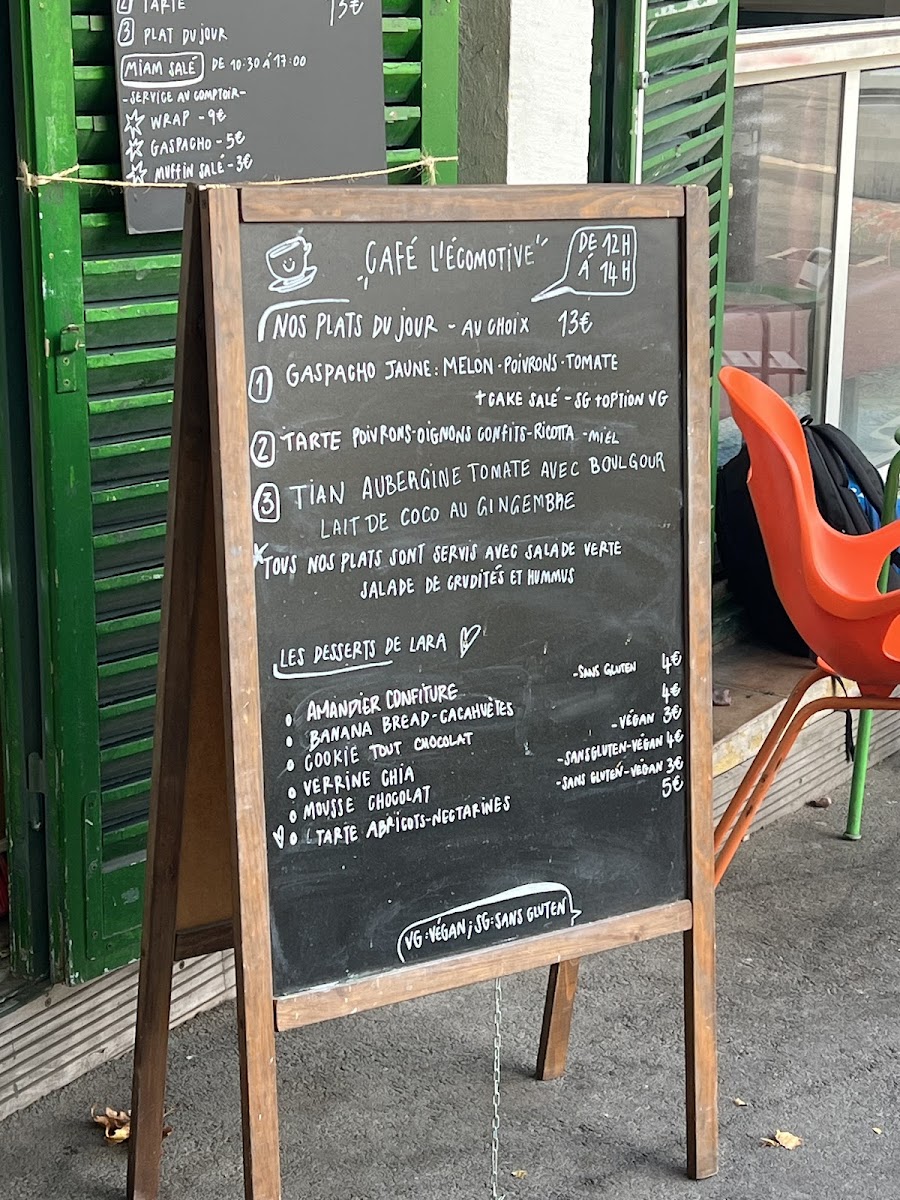 2 TARTE 13€
3 PLAT DU JOUR
MIAM SALÉ DE 10:30 À 17:00
-SERVICE AU COMPTOIR-
WRAP - 9€
GASPACHO - 5€
MUFFIN SALÉ - 3€
CAFÉ L'ÉCOMOTIVE
DE 12H
À 14H
NOS PLATS DU JOUR - AU CHOIX 13€
1 GASPACHO JAUNE: MELON-POIVRONS-TOMATE
+ CAKE SALÉ - SG + OPTION VG
2 TARTE POIVRONS-OIGNONS CONFITS-RICOTTA -MIEL
3 TIAN AUBERGINE TOMATE AVEC BOULGOUR
LAIT DE COCO AU GINGEMBRE
*TOUS NOS PLATS SONT SERVIS AVEC SALADE VERTE
SALADE DE CRUDITÉS ET HUMMUS
LES DESSERTS DE LARA ♡
• AMANDIER CONFITURE -SANS GLUTEN 4€
• BANANA BREAD-CACAHUÈTES 4€
• COOKIE TOUT CHOCOLAT -VÉGAN 3€
• VERRINE CHIA -SANS GLUTEN-VÉGAN 4€
• MOUSSE CHOCOLAT -SANS GLUTEN-VÉGAN 3€
♡ • TARTE ABRICOTS-NECTARINES 5€
VG:VÉGAN; SG:SANS GLUTEN